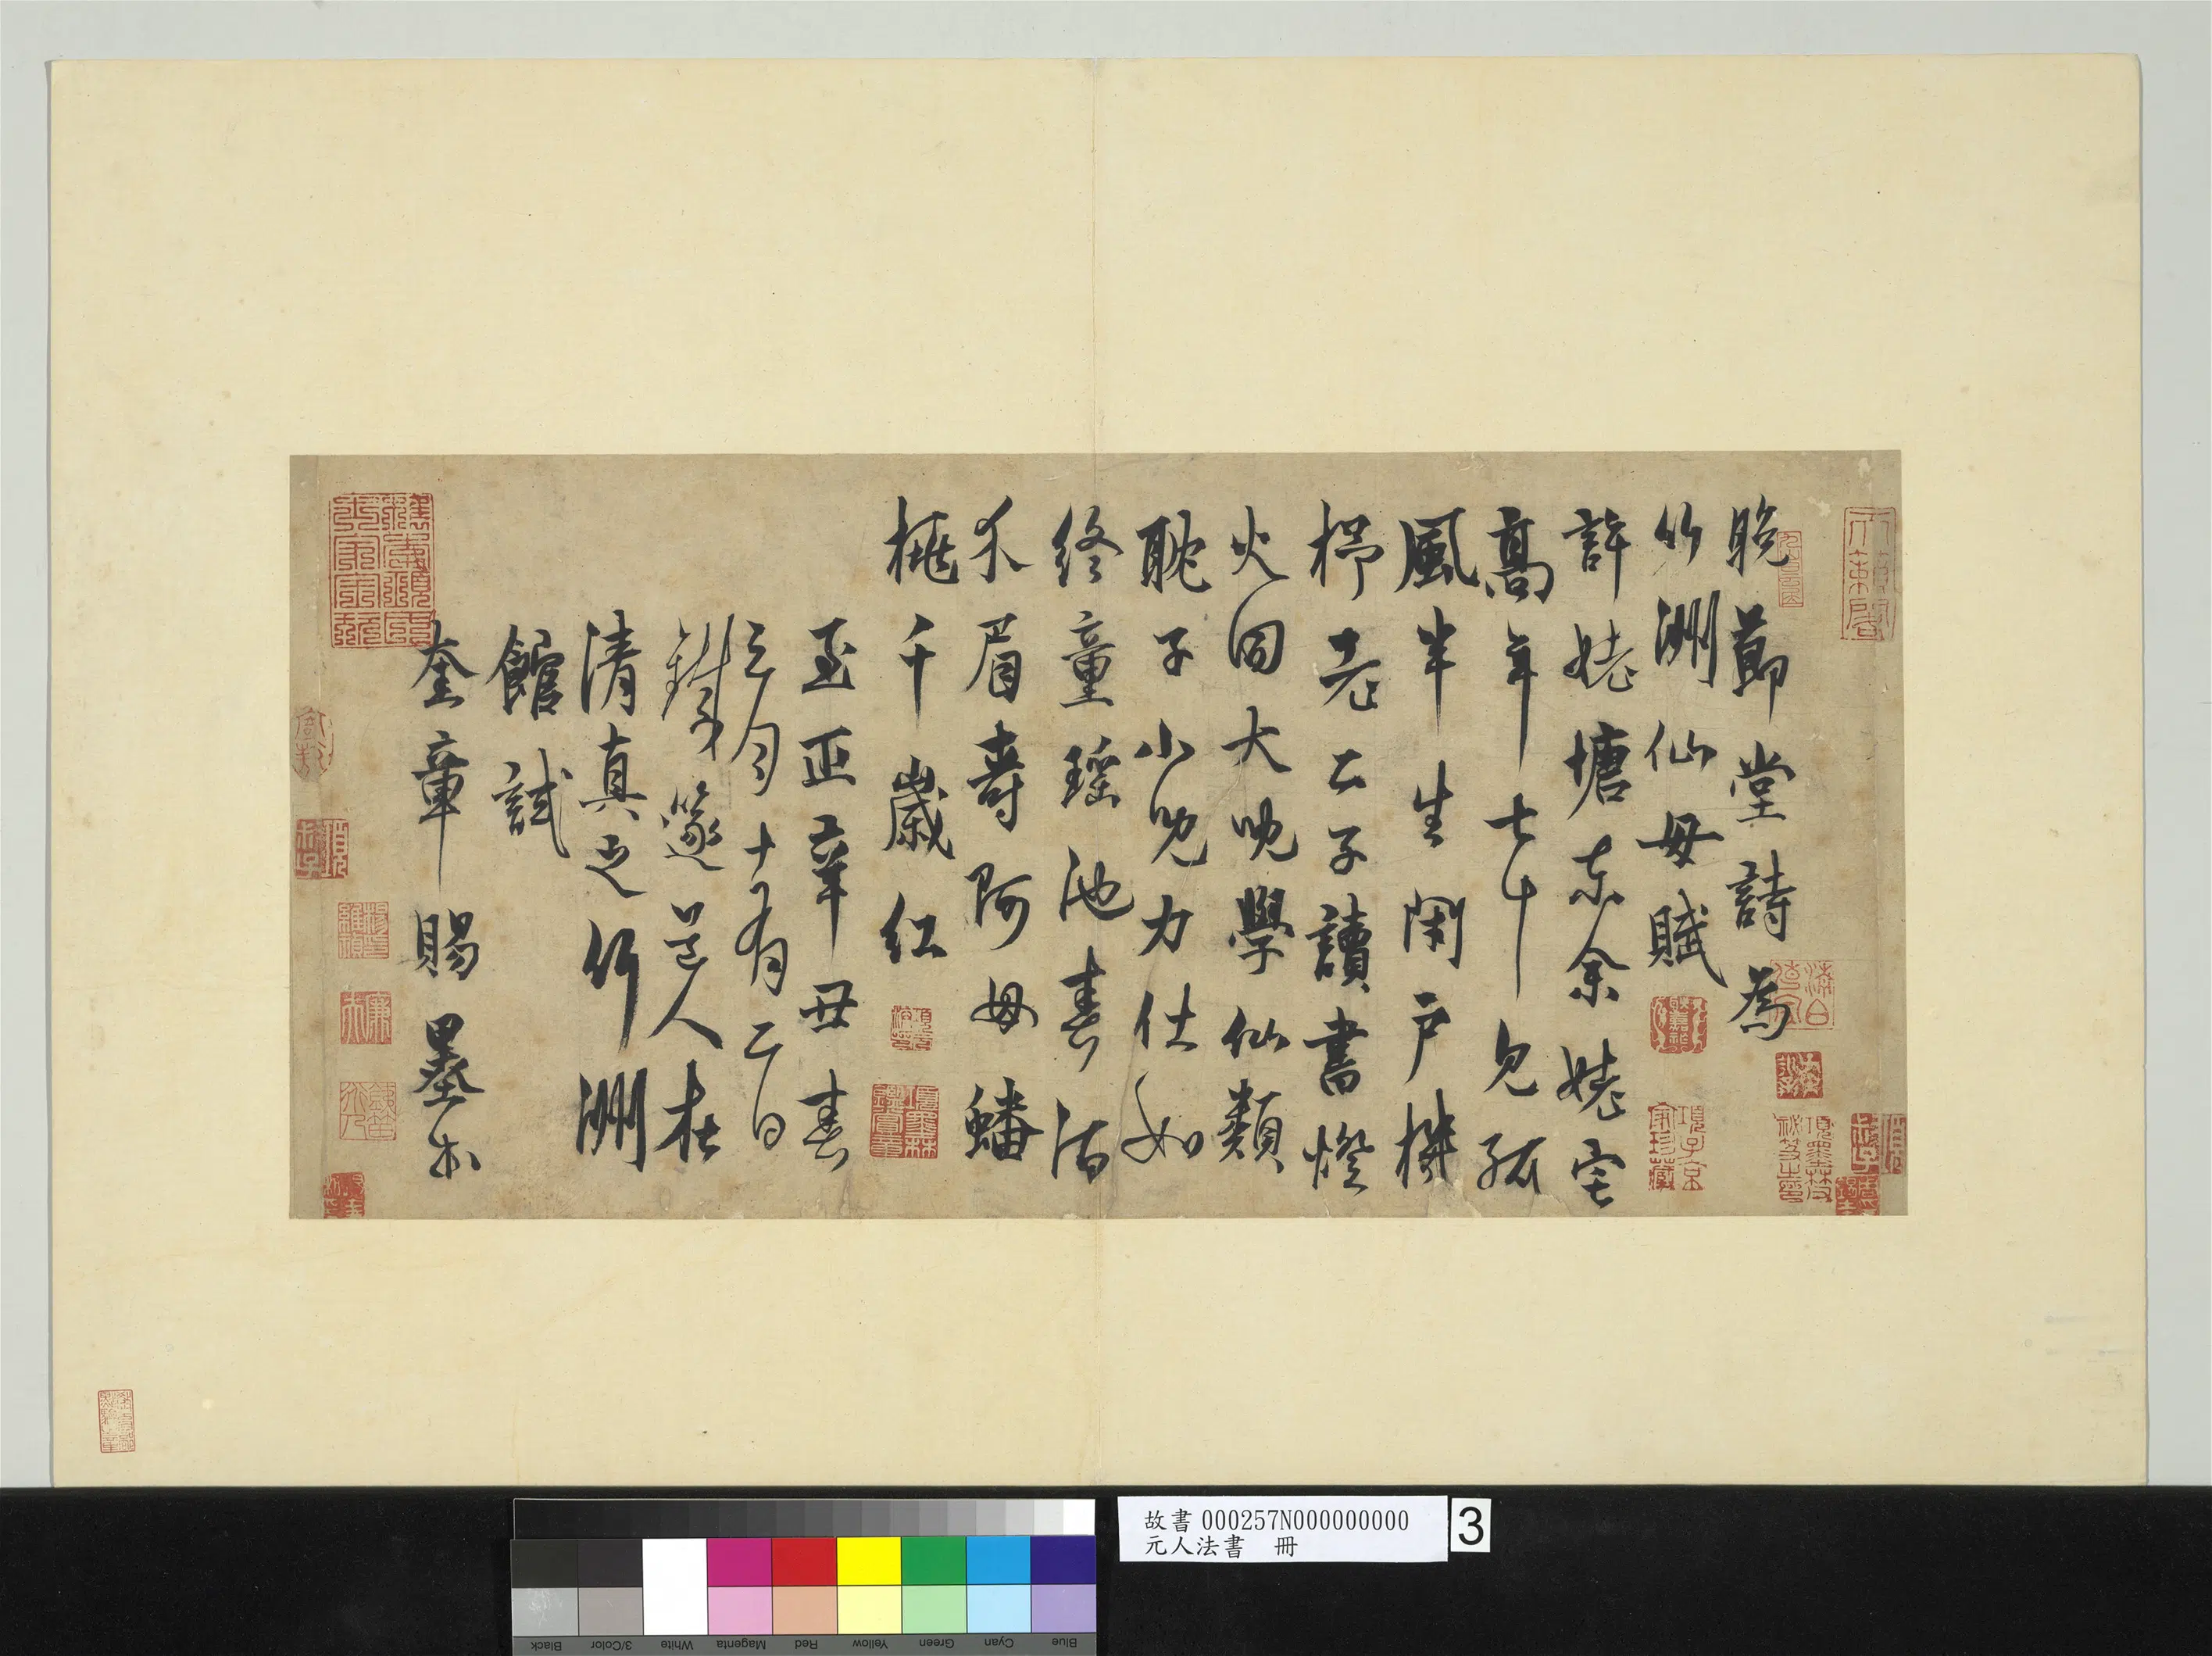 晚節堂詩為
竹洲仙母賦
許姥塘東余姥宅
高年七十見孤
風半生閉戶機
杼老二子讀書燈
火同大兒學仙類
耽子小兒力仕如
終童瑤池春酒
介眉壽阿母蟠
桃千歲紅
至正辛丑春
三月十有二日
鐵篆道人在
清真之竹洲
館試
奎章賜墨書
故書000257N000000000
元人法書 冊
3
Black
3/Color
White
Magenta
Red
Yellow
Green
Cyan
Blue